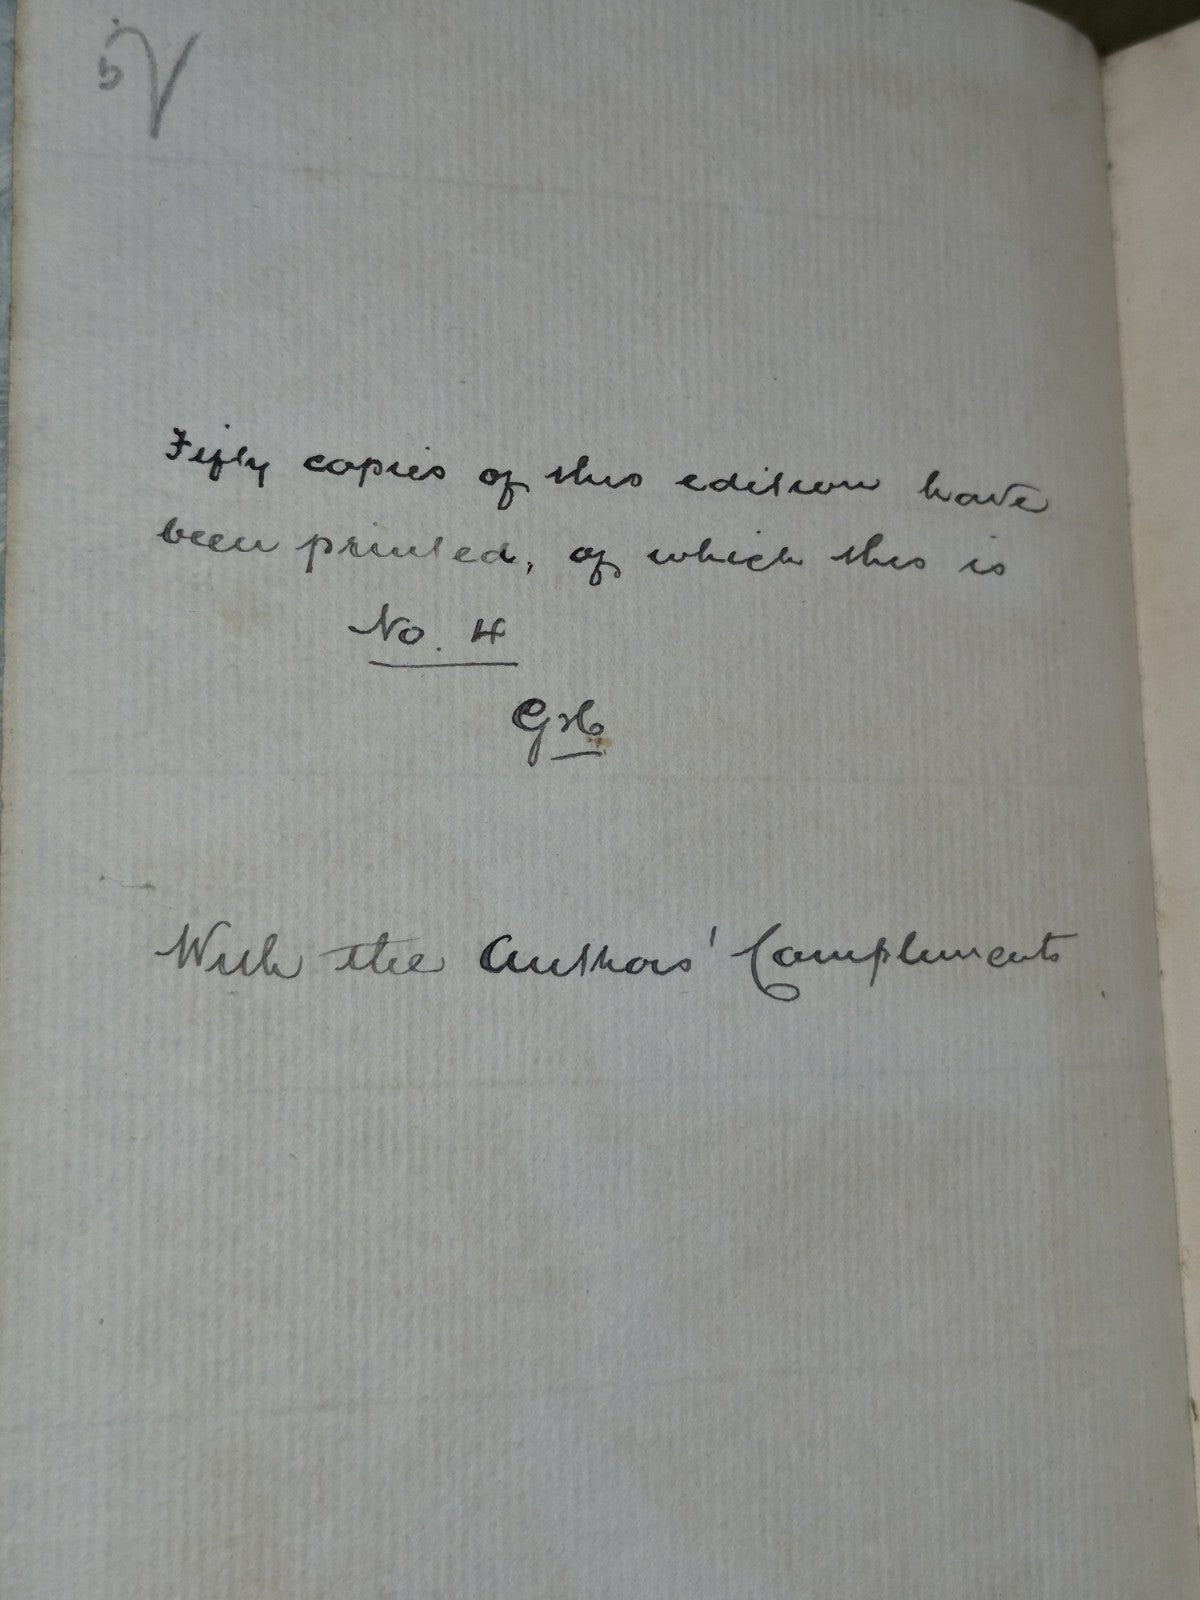 Fifty copies of this edition have
been printed, of which this is
No. 4
With the Authors' Compliments